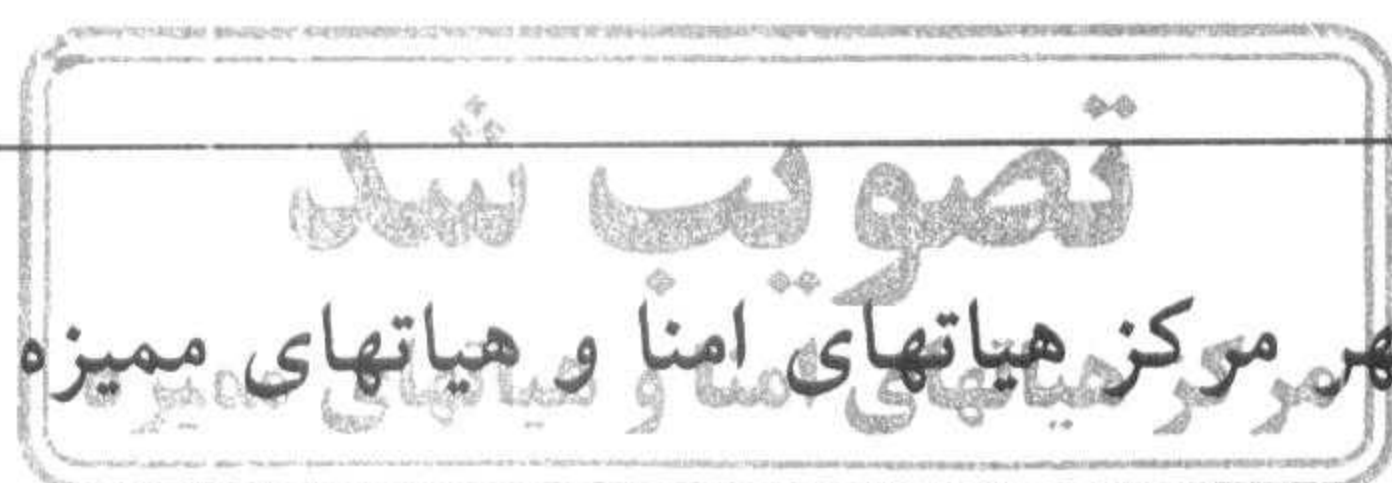 تصویب شد
مهر مرکز هیاتهای امنا و هیاتهای ممیزه
مرکز هیاتهای امنا و هیاتهای ممیزه